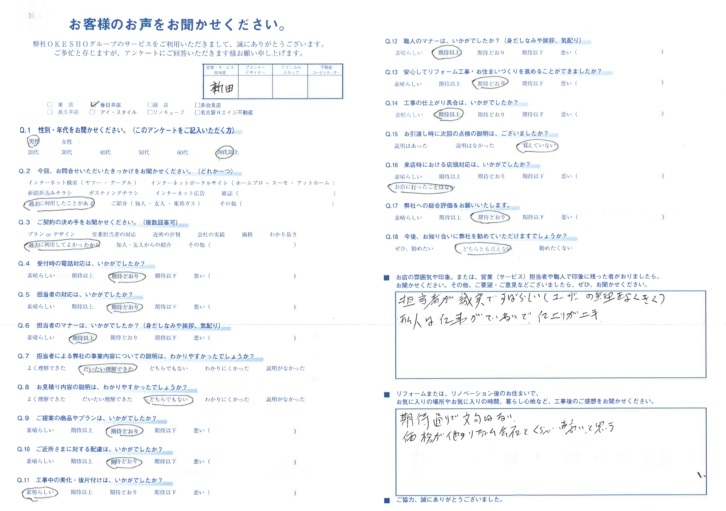 お客様のお声をお聞かせください。
弊社OKESHOグループのサービスをご利用いただきまして、誠にありがとうございます。
ご多忙と存じますが、アンケートにご回答いただきます様お願い申し上げます。
新田
□ 東店 ☑ 春日井店 □ 緑店 □ 多治見店
□ 長久手店 □ アイ・スタイル □ リノキューブ □ 名古屋Rエイジ不動産
Q.1 性別・年代をお聞かせください。(このアンケートをご記入いただく方)
男性 女性
20代 30代 40代 50代 60代 70代以上
Q.2 今回、お問合せいただいたきっかけをお聞かせください。(どれか一つ)
インターネット検索(ヤフー・グーグル) インターネットポータルサイト(ホームプロ・スーモ・アットホーム)
新聞折込みチラシ ポスティングチラシ インターネット広告 雑誌( )
過去に利用したことがある ご紹介(知人・友人・東邦ガス) その他( )
Q.3 ご契約の決め手をお聞かせください。(複数回答可)
プラン or デザイン 営業担当者の対応 近所の評判 会社の実績 価格 わかり易さ
過去に利用してよかったから 知人・友人からの紹介 その他( )
Q.4 受付時の電話対応は、いかがでしたか?
素晴らしい 期待以上 期待どおり 期待以下 悪い( )
Q.5 担当者の対応は、いかがでしたか?
素晴らしい 期待以上 期待どおり 期待以下 悪い( )
Q.6 担当者のマナーは、いかがでしたか?(身だしなみや挨拶、気配り)
素晴らしい 期待以上 期待どおり 期待以下 悪い( )
Q.7 担当者による弊社の事業内容についての説明は、わかりやすかったでしょうか?
よく理解できた だいたい理解できた どちらでもない わかりにくかった 説明がなかった
Q.8 お見積り内容の説明は、わかりやすかったでしょうか?
よく理解できた だいたい理解できた どちらでもない わかりにくかった 説明がなかった
Q.9 ご提案の商品やプランは、いかがでしたか?
素晴らしい 期待以上 期待どおり 期待以下 悪い( )
Q.10 ご近所さまに対する配慮は、いかがでしたか?
素晴らしい 期待以上 期待どおり 期待以下 悪い( )
Q.11 工事中の美化・後片付けは、いかがでしたか?
素晴らしい 期待以上 期待どおり 期待以下 悪い( )
Q.12 職人のマナーは、いかがでしたか?(身だしなみや挨拶、気配り)
素晴らしい 期待以上 期待どおり 期待以下 悪い( )
Q.13 安心してリフォーム工事・お住まいづくりを進めることができましたか?
素晴らしい 期待以上 期待どおり 期待以下 悪い( )
Q.14 工事の仕上がり具合は、いかがでしたか?
素晴らしい 期待以上 期待どおり 期待以下 悪い( )
Q.15 お引渡し時に次回の点検の説明は、ございましたか?
説明はあった 説明はなかった 覚えていない
Q.16 来店時における店頭対応は、いかがでしたか?
素晴らしい 期待以上 期待どおり 期待以下 悪い( )
お店に行ったことはない
Q.17 弊社への総合評価をお願いいたします。
素晴らしい 期待以上 期待どおり 期待以下 悪い( )
Q.18 今後、お知り合いに弊社を勧めていただけますでしょうか?
ぜひ、勧めたい どちらとも言えない 勧めたくない
■ お店の雰囲気や印象、または、営業(サービス)担当者や職人で印象に残った者がおりましたら、
お聞かせください。その他、ご要望・ご意見などございましたら、ぜひ、お聞かせください。
担当者が誠実ですばらしい(ユーザーの
職人は仕事がていねいで仕上りが上手
■ リフォームまたは、リノベーション後のお住まいで、
お気に入りの場所やお気に入りの時間、暮らし心地など、工事後のご感想をお聞かせください。
期待通りで文句はない
価格が他のリフォーム会社とくらべ高いと思う
■ ご協力、誠にありがとうございました。